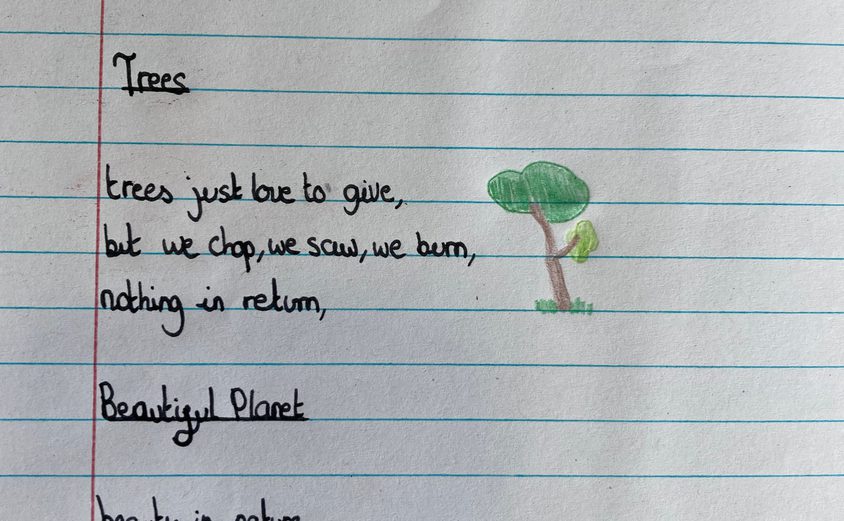 Trees
trees just love to give,
but we chop, we saw, we burn,
nothing in return,
Beautiful Planet
beauty in nature